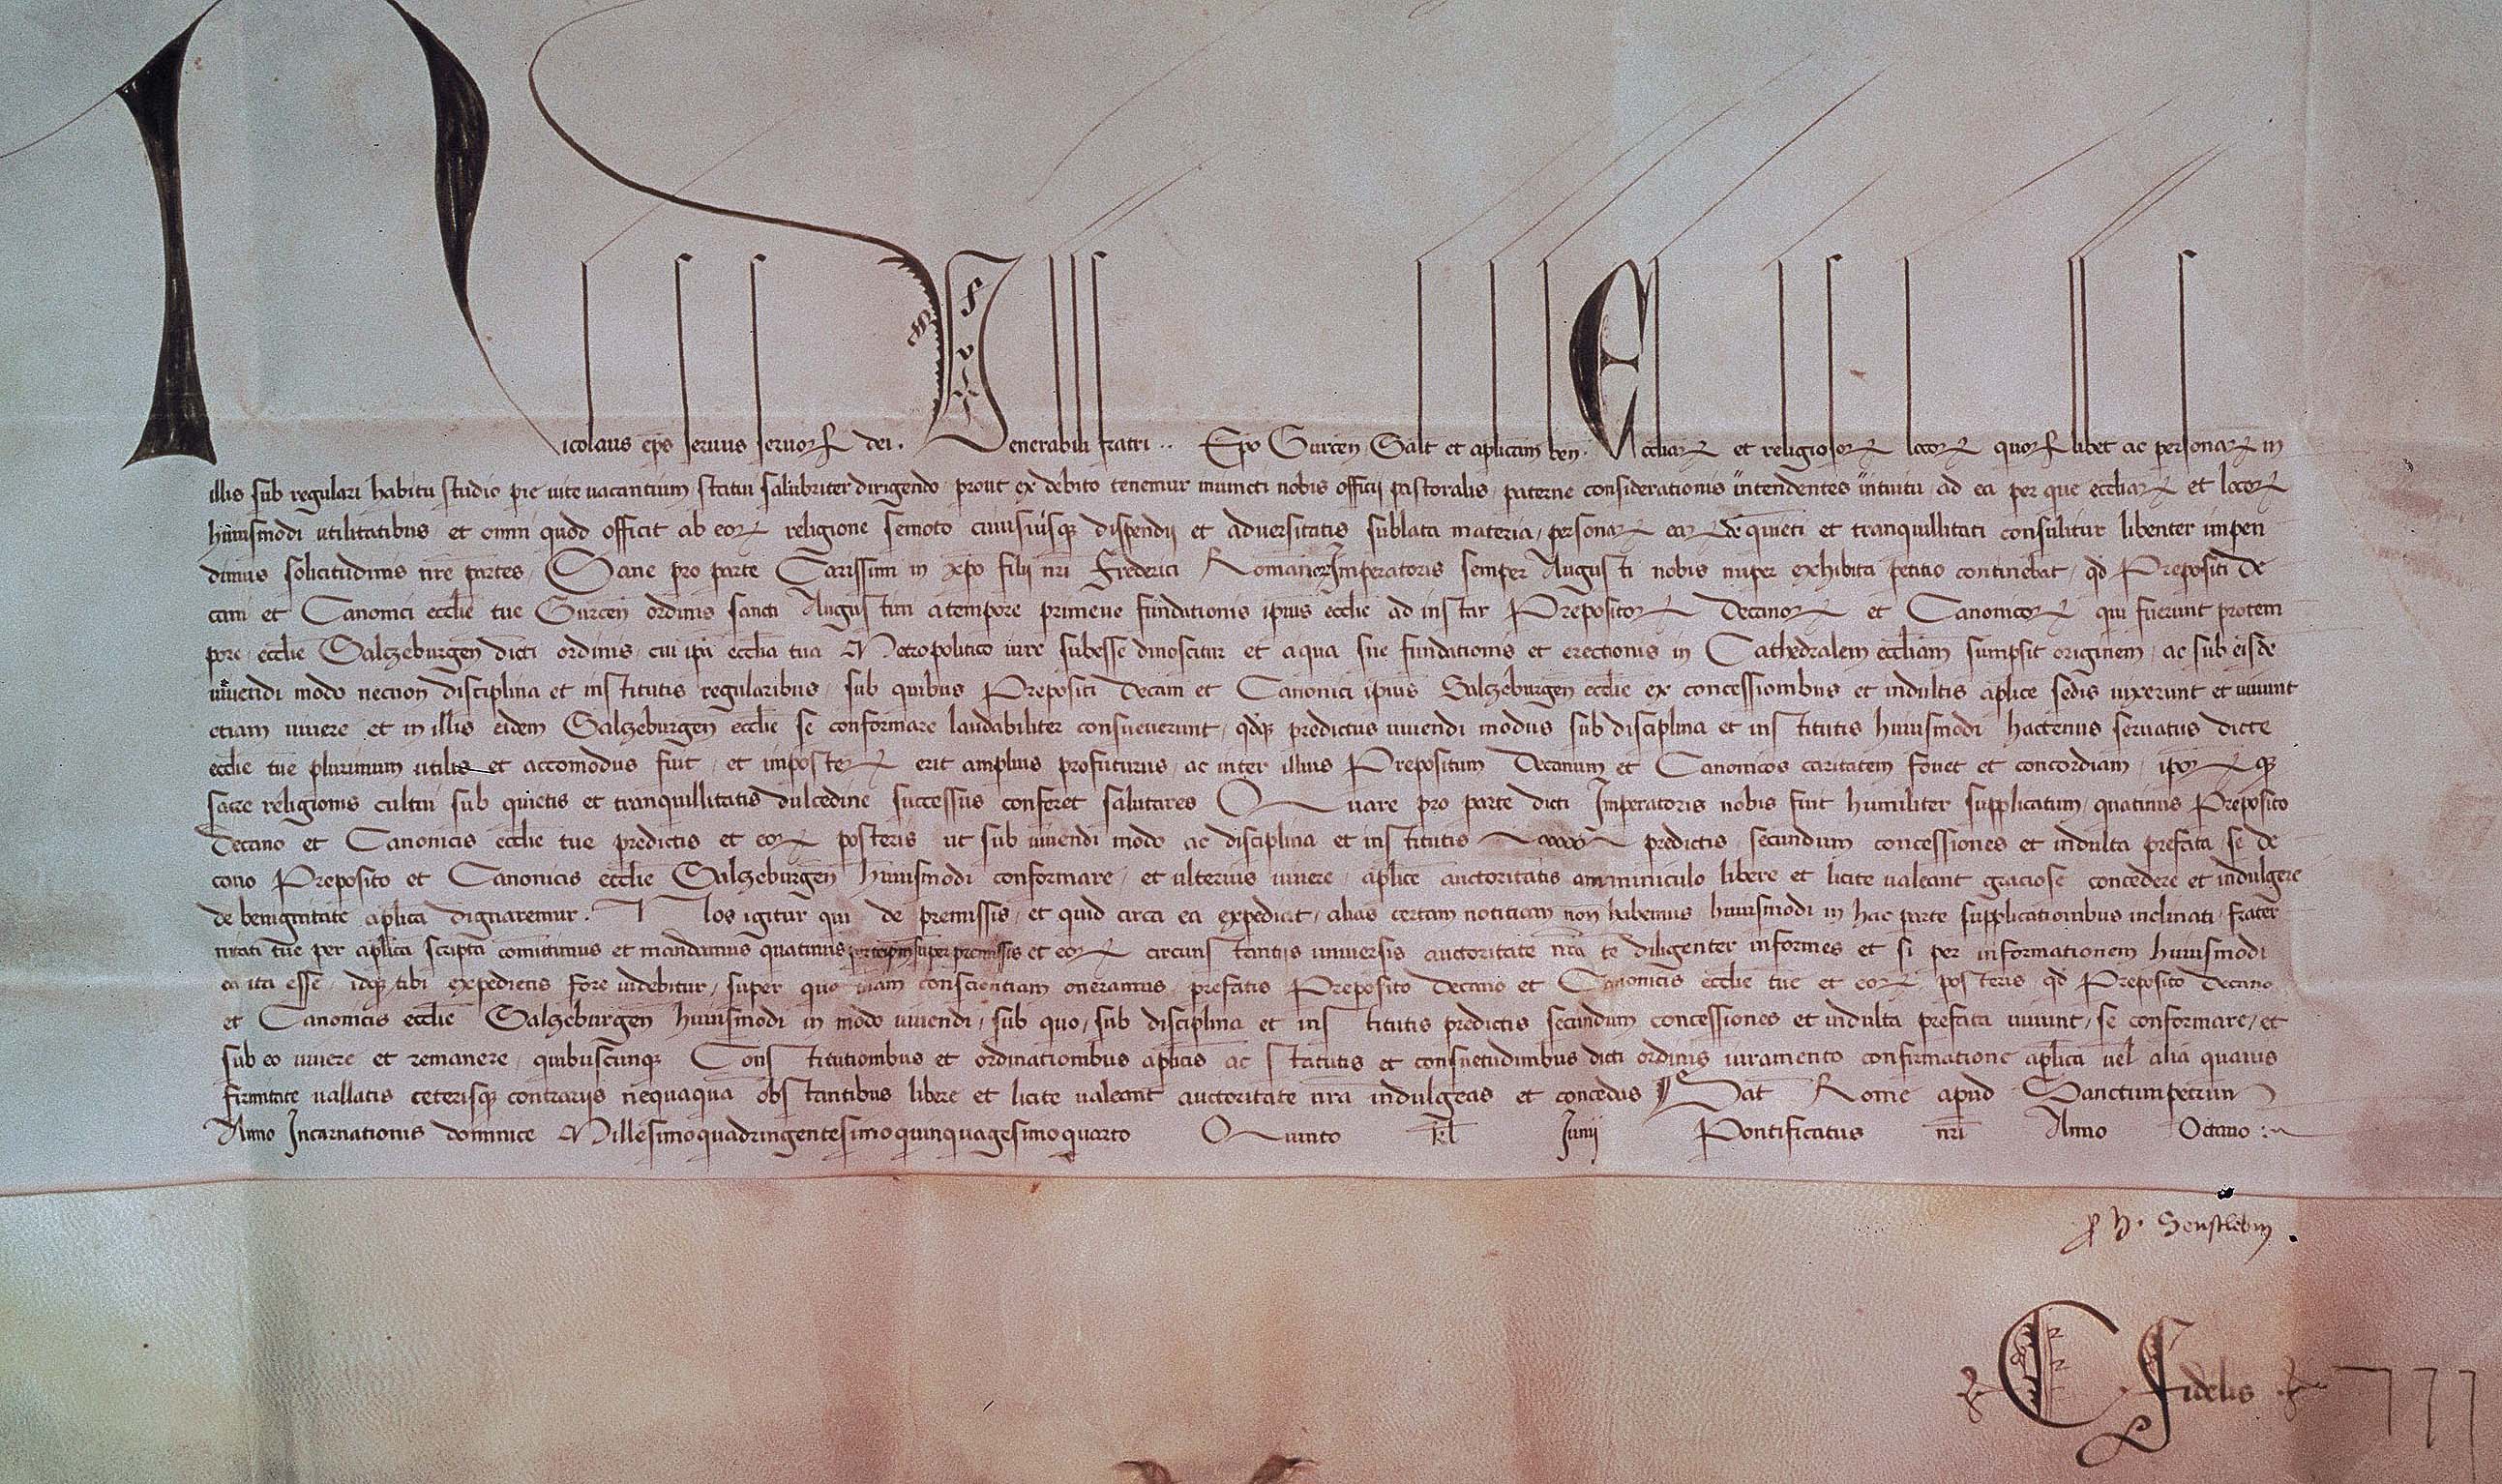 Nicolaus eps seruus seruorꝝ dei. Venerabili fratri .. Epo Gurcen̄ Salt et aplicam ben̄. Eccliarꝝ et religiosorꝝ locorꝝ quorꝝlibet ac personarꝝ in
illis sub regulari habitu studio pie uite uacantium statui salubriter dirigendo prout ex debito tenemur iniuncti nobis officij pastoralis paterne considerationis intendentes intuitu ad ea per que eccliarꝝ et locorꝝ
huiusmodi utilitatibus et omni quod officit ab eorꝝ religione semoto cuiusuisqꝫ dispendij et aduersitatis sublata materia personarꝝ earꝝdē quieti et tranquillitati consulitur libenter impen
dimus solicitudinis nr̄e partes, Sane pro parte Carissimi in xp̄o filij nr̄i Frederici Romanorꝝ Imperatoris semper Augusti nobis nuper exhibita petitio continebat, qd̄ Prepositi De
cani et Canonici ecclie tue Gurcen̄ ordinis sancti Augustini a tempore primeue fundationis ipius ecclie ad instar Prepositorꝝ Decanorꝝ et Canonicorꝝ qui fuerunt pro tem
pore ecclie Salczeburgen̄ dicti ordinis cui ip̄a ecclia tua Metropolitico iure subesse dinoscitur et a qua sue fundationis et erectionis in Cathedralem eccliam sumpsit originem ac sub eisdē
uiuendi modo necnon disciplina et institutis regularibus sub quibus Prepositi Decani et Canonici ipius Salczeburgen̄ ecclie ex concessionibus et indultis aplice sedis uixerunt et uiuunt
etiam uiuere et in illis eidem Salczeburgen̄ ecclie se conformare laudabiliter consueuerunt, qd̄qꝫ predictus uiuendi modus sub disciplina et institutis huiusmodi hactenus seruatus dicte
ecclie tue plurimum utilis et accomodus fuit, et imposterꝝ erit amplius profuturus, ac inter illius Prepositum Decanum et Canonicos caritatem fouet et concordiam, ip̄orꝝqꝫ
sacre religionis cultui sub quietis et tranquillitatis dulcedine successus conferet salutares Quare pro parte dicti Imperatoris nobis fuit humiliter supplicatum, quatinus Preposito
Decano et Canonicis ecclie tue predictis et eorꝝ posteris ut sub uiuendi modo ac disciplina et institutis predictis secundum concessiones et indulta prefata se De
cano Preposito et Canonicis ecclie Salczeburgen̄ huiusmodi conformare, et ulterius uiuere, aplice auctoritatis amminiculo libere et licite ualeant graciose concedere et indulgere
de benignitate aplica dignaremur. Nos igitur qui de premissis, et quid circa ea expediat, alias certam notitiam non habemus huiusmodi in hac parte supplicationibus inclinati, frater
nitati tue per aplica scripta comittimus et mandamus quatinus super premissis et eorꝝ circunstantijs uniuersis auctoritate nr̄a te diligenter informes et si per informationem huiusmodi
ea ita esse, idqꝫ tibi expediens fore uidebitur, super quo tuam conscientiam oneramus, prefatis Preposito Decano et Canonicis ecclie tue et eorꝝ posteris qd̄ Preposito Decano
et Canonicis ecclie Salczeburgen̄ huiusmodi in modo uiuendi, sub quo, sub disciplina et institutis predictis secundum concessiones et indulta prefata uiuunt, se conformare, et
sub eo uiuere et remanere, quibuscunqꝫ Constitutionibus et ordinationibus aplicis ac statutis et consuetudinibus dicti ordinis iuramento confirmatione aplica uel alia quauis
firmitate uallatis ceterisqꝫ contrarijs nequaquā obstantibus libere et licite ualeant auctoritate nr̄a indulgeas et concedas Dat̄ Rome apud Sanctumpetrum
Anno Incarnationis dominice Millesimoquadringentesimoquinquagesimoquarto Quinto kl̄ Iunij Pontificatus nr̄i Anno Octauo
ꝓ h. Senftleben.
C Fidelis